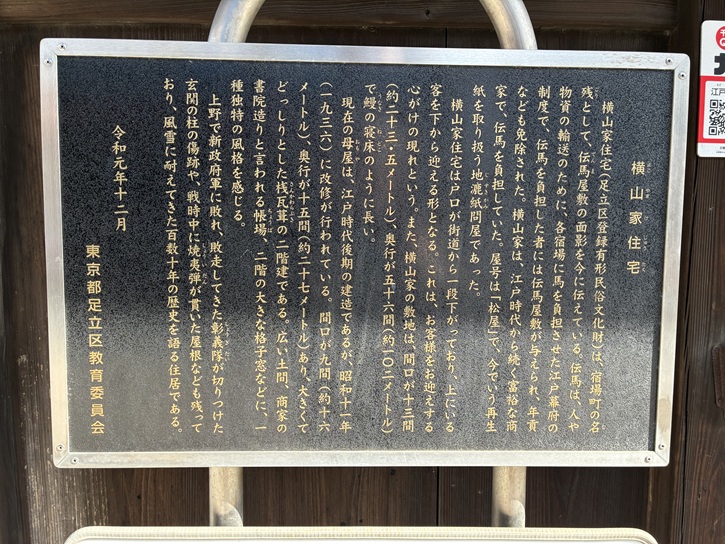 横山家住宅
横山家住宅(足立区登録有形民俗文化財)は、宿場町の名
残として、伝馬屋敷の面影を今に伝えている。伝馬は、人や
物資の輸送のために、各宿場に馬を負担させた江戸幕府の
制度で、伝馬を負担した者には伝馬屋敷が与えられ、年貢
なども免除された。横山家は、江戸時代から続く富裕な商
家で、伝馬を負担していた。屋号は「松屋」で、今でいう再生
紙を取り扱う地漉紙問屋であった。
横山家住宅は戸口が街道から一段下がっており、上にいる
客を下から迎える形となる。これは、お客様をお迎えする
心がけの現れという。また、横山家の敷地は、間口が十三間
(約二十三・五メートル)、奥行が五十六間(約一〇二メートル)
で鰻の寝床のように長い。
現在の母屋は、江戸時代後期の建造であるが、昭和十一年
(一九三六)に改修が行われている。間口が九間(約十六
メートル)、奥行が十五間(約二十七メートル)あり、大きくて
どっしりとした桟瓦葺の二階建である。広い土間、商家の
書院造りと言われる帳場、二階の大きな格子窓などに、一
種独特の風格を感じる。
上野で新政府軍に敗れ、敗走してきた彰義隊が切りつけた
玄関の柱の傷跡や、戦時中に焼夷弾が貫いた屋根なども残って
おり、風雪に耐えてきた百数十年の歴史を語る住居である。
令和元年十二月
東京都足立区教育委員会
江戸